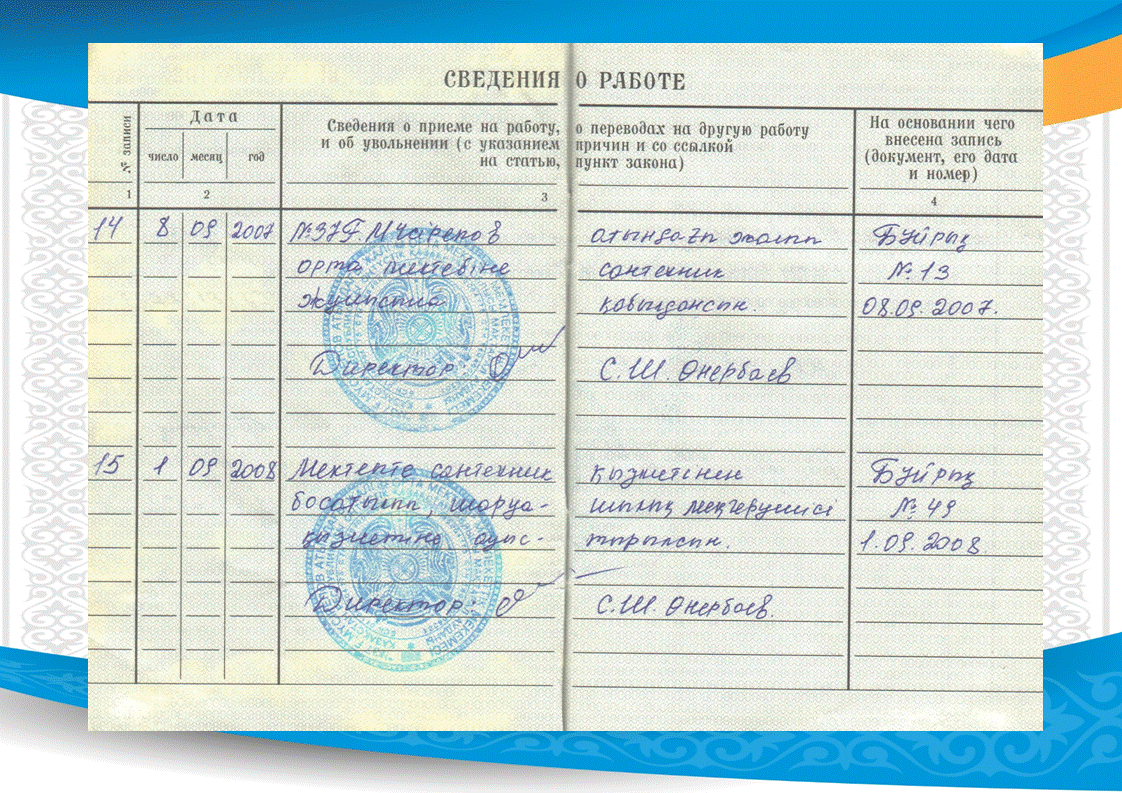 СВЕДЕНИЯ О РАБОТЕ
№ записи
Дата
число месяц год
Сведения о приеме на работу, о переводах на другую работу
и об увольнении (с указанием причин и со ссылкой
на статью, пункт закона)
На основании чего
внесена запись
(документ, его дата
и номер)
1 2 3 4
14 8 09 2007 №37 Г. Мүсірепов атындағы жалпы Бұйрық
орта мектебіне сантехник № 13
жұмысына қабылдансын. 08.09.2007.
Директор: С.Ш. Өнербаев
15 1 09 2008 Мектепте сантехник қызметінен Бұйрық
босатылып, шаруа- шылық меңгерушісі № 49
қызметіне ауыс- тырылсын. 1.09.2008.
Директор: С.Ш. Өнербаев.